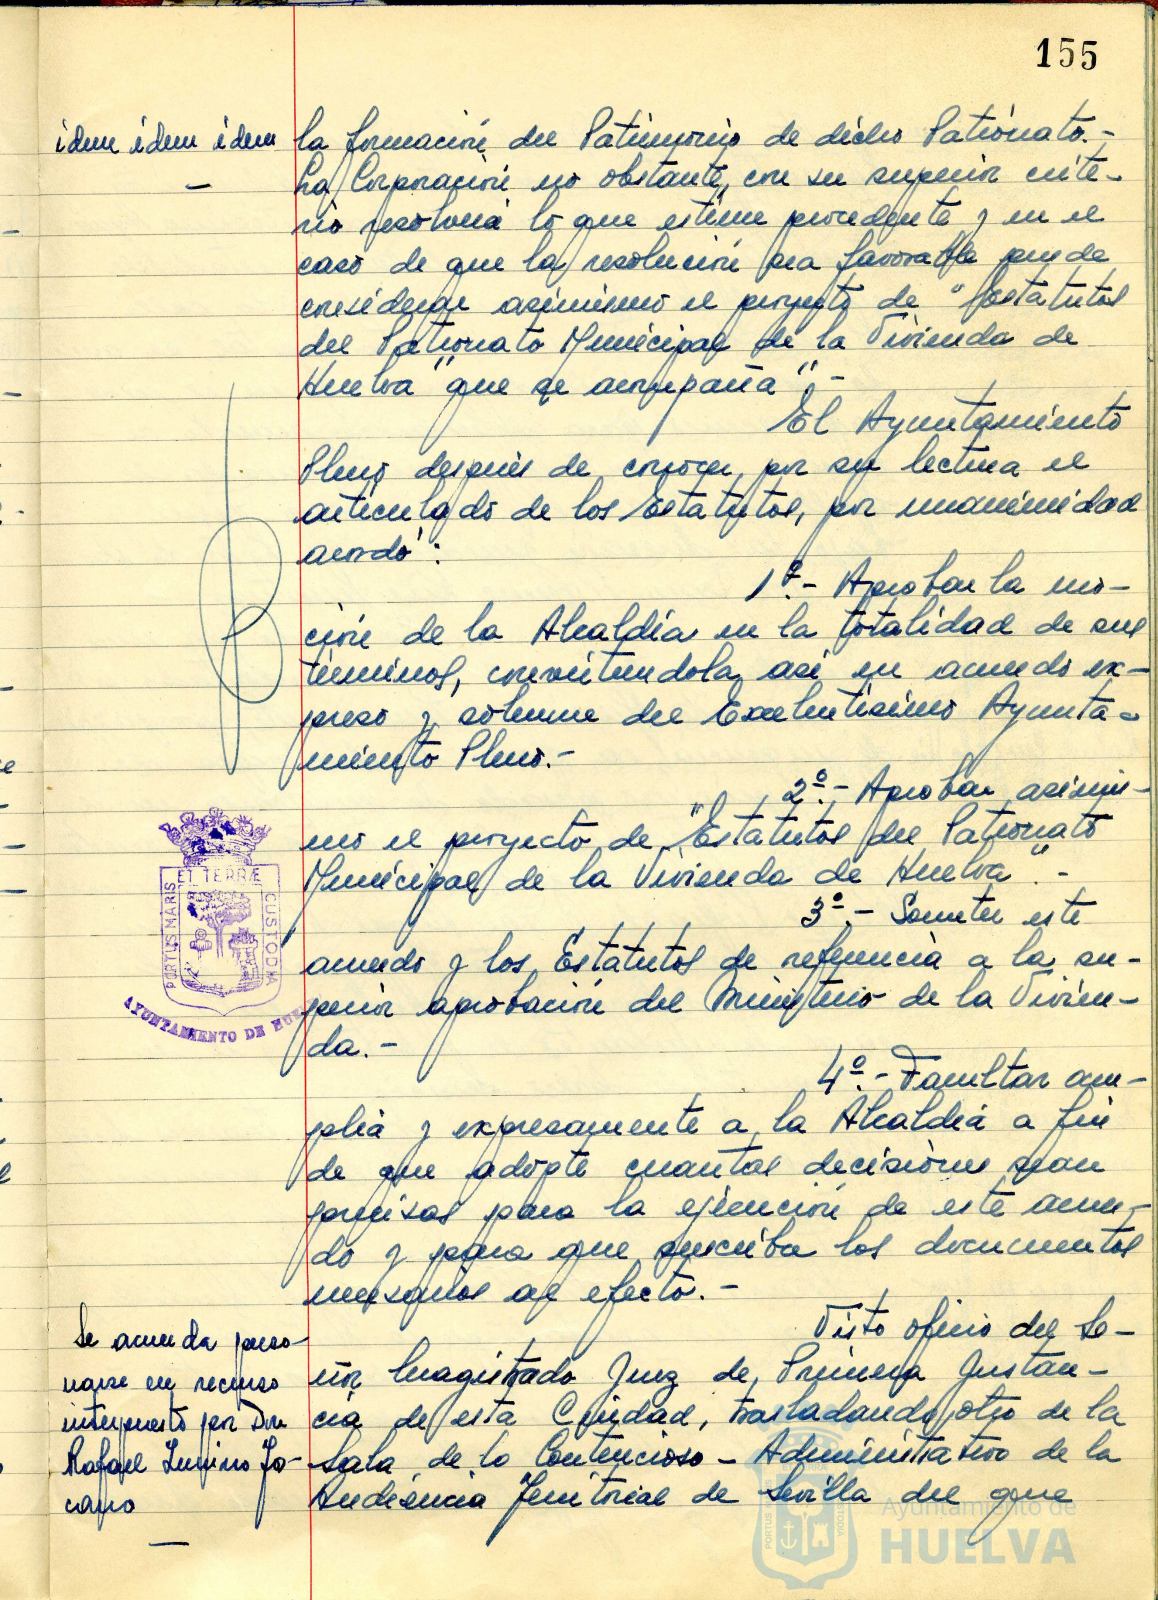 155
idem idem idem
la formación del Patrimonio de dicho Patronato.-
La Corporación no obstante, con su superior crite-
rio resolverá lo que estime procedente y en el
caso de que la resolución sea favorable puede
considerar asimismo el proyecto de "Estatutos
del Patronato Municipal de la Vivienda de
Huelva" que se acompaña".-
El Ayuntamiento
Pleno después de conocer por su lectura el
articulado de los Estatutos, por unanimidad
acordó:
1º.- Aprobar la mo-
ción de la Alcaldía en la totalidad de sus
términos, convirtiendola así en acuerdo ex-
preso y solemne del Excelentísimo Ayunta-
miento Pleno.-
2º.- Aprobar asimis-
mo el proyecto de "Estatutos del Patronato
Municipal de la Vivienda de Huelva".-
3º.- Someter este
acuerdo y los Estatutos de referencia a la su-
perior aprobación del Ministerio de la Vivien-
da.-
4º.- Facultar am-
plia y expresamente a la Alcaldía a fin
de que adopte cuantas decisiones sean
precisas para la ejecución de este acuer-
do y para que suscriba los documentos
necesarios al efecto.-
Se acuerda perso-
narse en recurso
interpuesto por Don
Rafael
Visto oficio del Se-
ñor Magistrado Juez de Primera Instan-
cia de esta Ciudad, trasladando otro de la
Sala de lo Contencioso-Administrativo de la
Audiencia Territorial de Sevilla del que
PORTUS MARIS
ET TERRÆ
CUSTODIA
AYUNTAMIENTO DE HUE
Ayuntamiento de
HUELVA